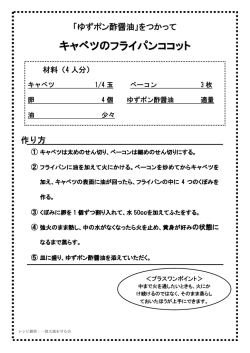 「ゆずポン酢醤油」をつかって
キャベツのフライパンココット
材料（4人分）
キャベツ 1/4玉 ベーコン 3枚
卵 4個 ゆずポン酢醤油 適量
油 少々
作り方
① キャベツは太めのせん切り、ベーコンは細めのせん切りにする。
② フライパンに油を加えて火にかける。ベーコンを炒めてからキャベツを
加え、キャベツの表面に油が回ったら、フライパンの中に4つのくぼみを
作る。
③ くぼみに卵を1個ずつ割り入れて、水50ccを加えてふたをする。
④ 強火のまま熱し、中の水がなくなったら火を止め、黄身が好みの状態に
なるまで蒸らす。
⑤ 皿に盛り、ゆずポン酢醤油を添えていただく。
＜プラスワンポイント＞
中まで火を通したいときも、火にか
け続けるのではなく、そのまま蒸らし
ておいたほうが上手にできます。